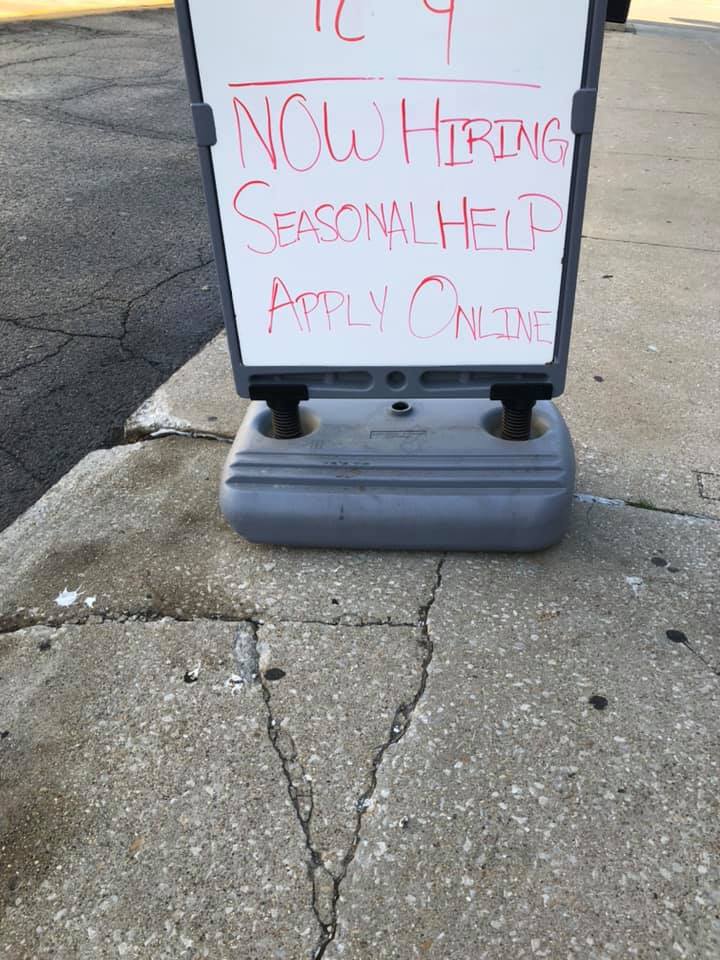 NOW HIRING
SEASONAL HELP
APPLY ONLINE